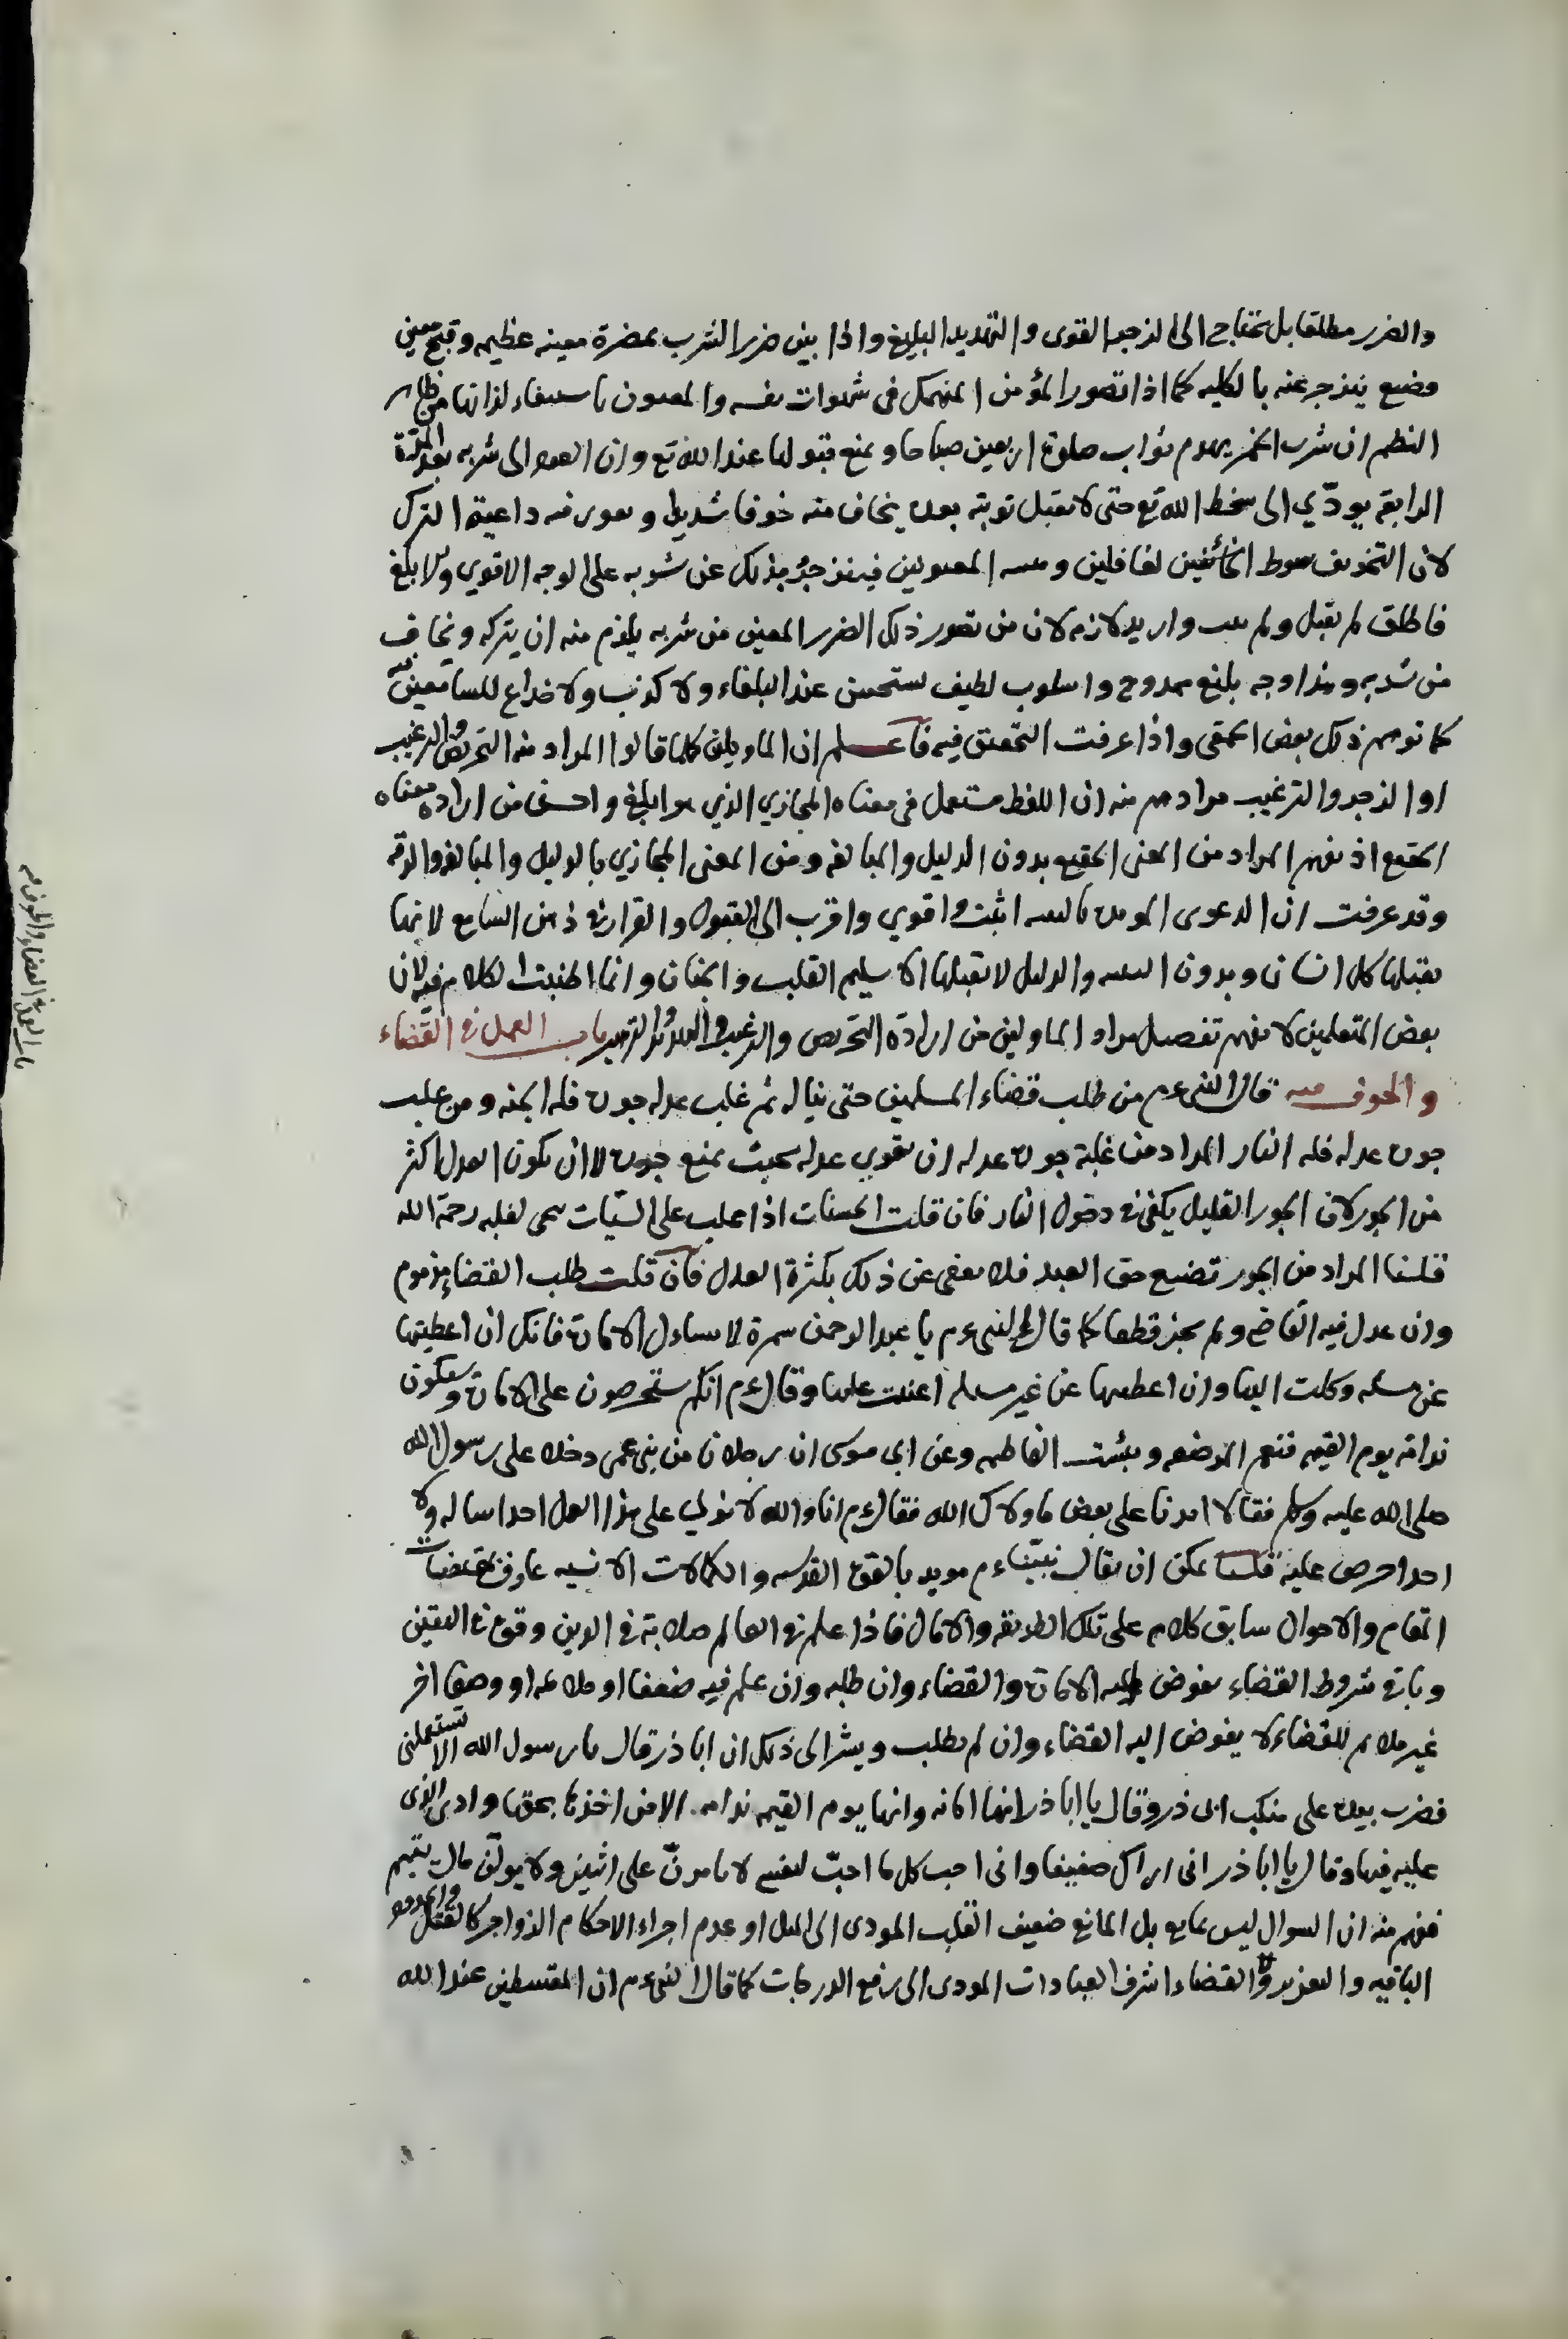 والضرر مطلقا بل يحتاج الى الزجر القوى والتهديد البليغ واذا بين ضرر الشرب بمضرة معينه عظيمه وقبح معين
وضيع ينزجر عنه بالكليه كما اذا تصور المؤمن المنهمك فى شهوات نفسه والمفتون باستيفاء لذاتها من ظاهر
النظم ان شرب الخمر يهدم ثواب صلوة اربعين صباحا ويمنع قبولها عند الله تع وان العود الى شربه بعد المرّة
الرابعة يودّي الى سخط الله تع حتى لا يقبل توبته بعده يخاف منه خوفا شديدا ويقوى فيه داعية الترك
لان التخويف سوط الخائفين لغافلين المفتونين فينزجرُ بذلك عن شربه على الوجه الاقوي والابلغ
فاطلق لم يقبل ولم يتب واريد لازمه لان من تصور ذلك الضرر المعين من شربه يلزم منه ان يتركه ويخاف
من شربه وهذا وجه بليغ ممدوح واسلوب لطيف يستحسن عند البلغاء ولا كذب ولا خداع للسامعين
كما توهم ذلك بعض الحمقى واذا عرفت التحقيق فيه فاعلم ان الماولين كلما قالوا المراد منه التحريض والترغيب
اوا الزجر والترغيب مرادهم منه ان اللفظ مستعمل فى معناه المجازي الذي هو ابلغ واحسن من ارادة معناه
الحقيقى اذ يفهم المراد من المعنى الحقيقى بدون الدليل والمبالغه ومن المعنى المجازي بالدليل والمبالغه والدقه
وقد عرفت ان الدعوى بالبينه اثبت واقوي واقرب الى القبول والقرار فى ذهن السامع لانها
يقبلها كل انسان وبدون البينه والدليل لا يقبلها الا سليم القلب والجنان وانما اطنبت الكلام فيه لان
بعض المتعلمين لا يفهم تفصيل مراد الماولين من ارادة التحريص والترغيب والتهديد باب العمل فى القضاء
والخوف منه قال النبى ءم من طلب قضاء المسلمين حتى يناله ثم غلب عدله جوره فله الجنه ومن غلب
جوره عدله فله النار المراد من غلبة جوره عدله ان يقوي عدله بحيث يمنع جوره لا ان يكون العدل اكثر
من الجور لان الجور القليل يكفى فى دخول النار فان قلت الحسنات اذا غلب على السيّات لغلبه رحمة الله
قلنا المراد من الجور تضيع حق العبد فلا يعفى عن ذلك بكثرة العدل فان قلت طلب القضاء مذموم
وان عدل فيه القاضى ولم يجز قطعا كما قال النبى ءم يا عبد الرحمن سمرة لا تسأل الامارة فانك ان اعطيتها
عن مسئله وكلت اليها وان اعطيتها عن غير مسئله اعنت عليها وقال ءم انكم ستحرصون على الامارة وستكون
ندامة يوم القيمه فنعم المرضعه وبئست الفاطمه وعن ابى موسى ان رجلان من بنى عمى دخلا على رسول الله
صلى الله عليه وسلم فقالا امرنا على بعض ما ولاك الله فقال ءم انا والله لا نولي على هذا العمل احدا ساله ولا
احدا حرص عليه قلنا يمكن ان يقال نبيّنا ءم مويد بالقوة القدسيه والكمالات الانسيه عارف بمقتضيات
المقام والاحوال سابق كلامه على تلك الطريقه والامال فاذا علم فى العالم صلابة فى الدين وقوع فى اليقين
وباقى شروط القضاء يفوض اليه الامارة والقضاء وان طلبه وان علم فيه ضعفا او وصفا اخر
غير ملايم للقضاء لا يفوض اليه القضاء وان لم يطلب ويشر الى ذلك ان ابا ذر قال يا رسول الله الا تستعملنى
فضرب بيده على منكب ابى ذر وقال يا ابا ذر انها امانه وانها يوم القيمه ندامه الا من اخذها بحقها وادى الذى
عليه فيها وقال يا ابا ذر انى اراك ضعيفا وانى احب لك ما احبّ لنفسى لا تامرنّ على اثنين ولا يولّن مال يتيم
ففهم منه ان السوال ليس بمانع بل المانع ضعيف القلب المودى الى الميل او عدم اجراء الاحكام الزواجر كالقتل والحدود
الباقيه والتعزير والقضاء اشرف العبادات المودى الى رفع الدرجات كما قال النبى ءم ان المقسطين عند الله